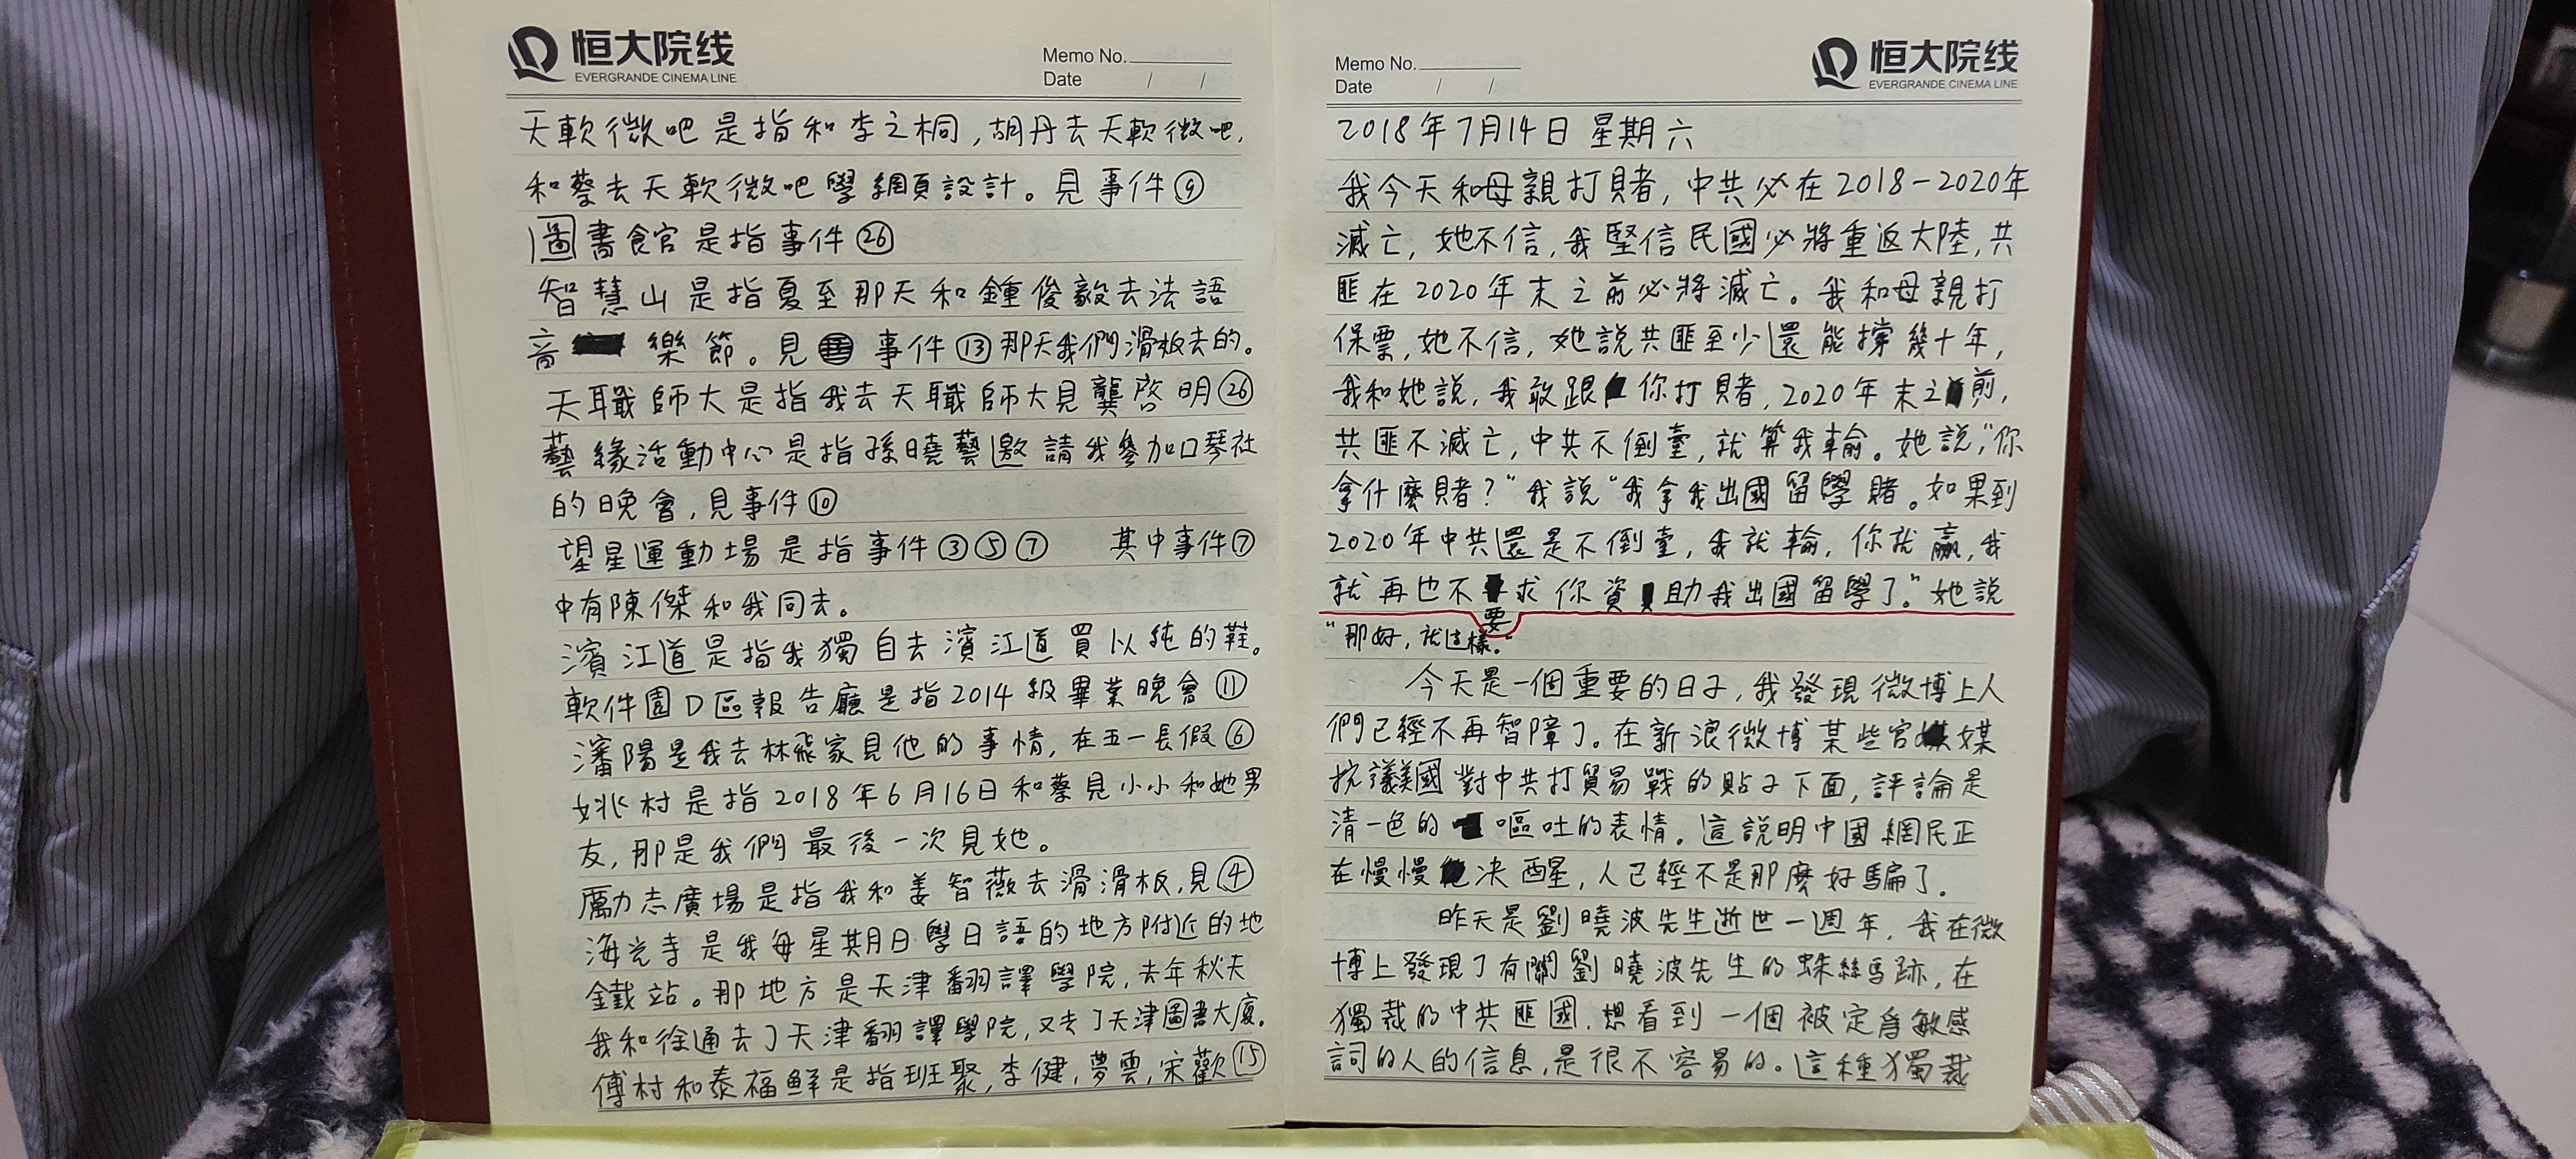 恒大院线
EVERGRANDE CINEMA LINE
Memo No.
Date / /
天軟微吧是指和李之桐,胡丹去天軟微吧,
和蔡去天軟微吧學網頁設計。見事件⑨
圖書館是指事件㉖
智慧山是指夏至那天和鍾俊毅去法語
音樂節。見事件⑬那天我們滑板去的。
天職師大是指我去天職師大見龔啓明㉖
藝緣活動中心是指孫曉藝邀請我參加口琴社
的晚會,見事件⑩
望星運動場是指事件③⑤⑦ 其中事件⑦
中有陳傑和我同去。
濱江道是指我獨自去濱江道買以純的鞋。
軟件園D區報告廳是指2014級畢業晚會⑪
瀋陽是我去林飛家見他的事情,在五一長假⑥
姚村是指2018年6月16日和蔡見小小和她男
友,那是我們最後一次見她。
勵志廣場是指我和姜智薇去滑滑板,見④
海光寺是我每星期日學日語的地方附近的地
鐵站。那地方是天津翻譯學院,去年秋天
我和徐通去了天津翻譯學院,又去了天津圖書大廈。
傅村和泰福鲜是指班聚,李健,夢雲,宋歡⑮
Memo No.
Date / /
恒大院线
EVERGRANDE CINEMA LINE
2018年7月14日 星期六
我今天和母親打賭,中共必在2018-2020年
滅亡,她不信,我堅信民國必將重返大陸,共
匪在2020年末之前必將滅亡。我和母親打
保票,她不信,她說共匪至少還能撐幾十年,
我和她說,我敢跟你打賭,2020年末之前,
共匪不滅亡,中共不倒臺,就算我輸。她說,"你
拿什麼賭?"我說"我拿我出國留學賭。如果到
2020年中共還是不倒臺,我就輸,你就贏,我
就再也不要求你資助我出國留學了。"她說
"那好,就這樣。"
今天是一個重要的日子,我發現微博上人
們已經不再智障了。在新浪微博某些官媒
抗議美國對中共打貿易戰的貼子下面,評論是
清一色的嘔吐的表情。這說明中國網民正
在慢慢决醒,人已經不是那麼好騙了.
昨天是劉曉波先生逝世一週年,我在微
博上發現了有關劉曉波先生的蛛絲馬跡,在
獨裁的中共匪國,想看到一個被定爲敏感
詞的人的信息,是很不容易的。這種獨裁